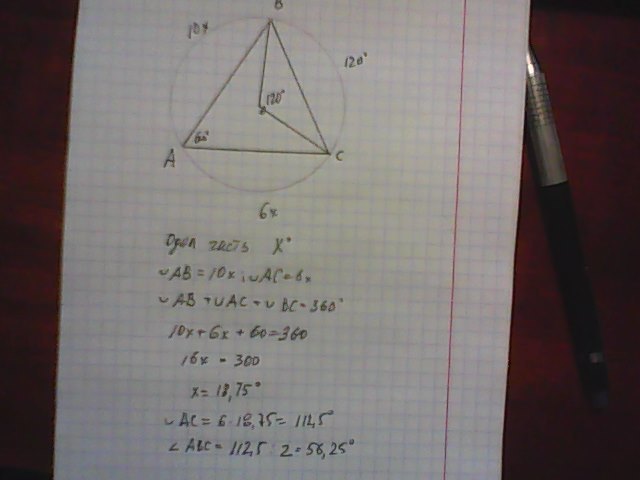 B
10x
120°
120°
60°
A
C
6x
Одна часть x°
◡AB = 10x, ◡AC = 6x
◡AB + ◡AC + ◡BC = 360°
10x + 6x + 60 = 360
16x = 300
x = 18,75°
◡AC = 6 · 18,75 = 112,5°
∠ABC = 112,5 : 2 = 56,25°